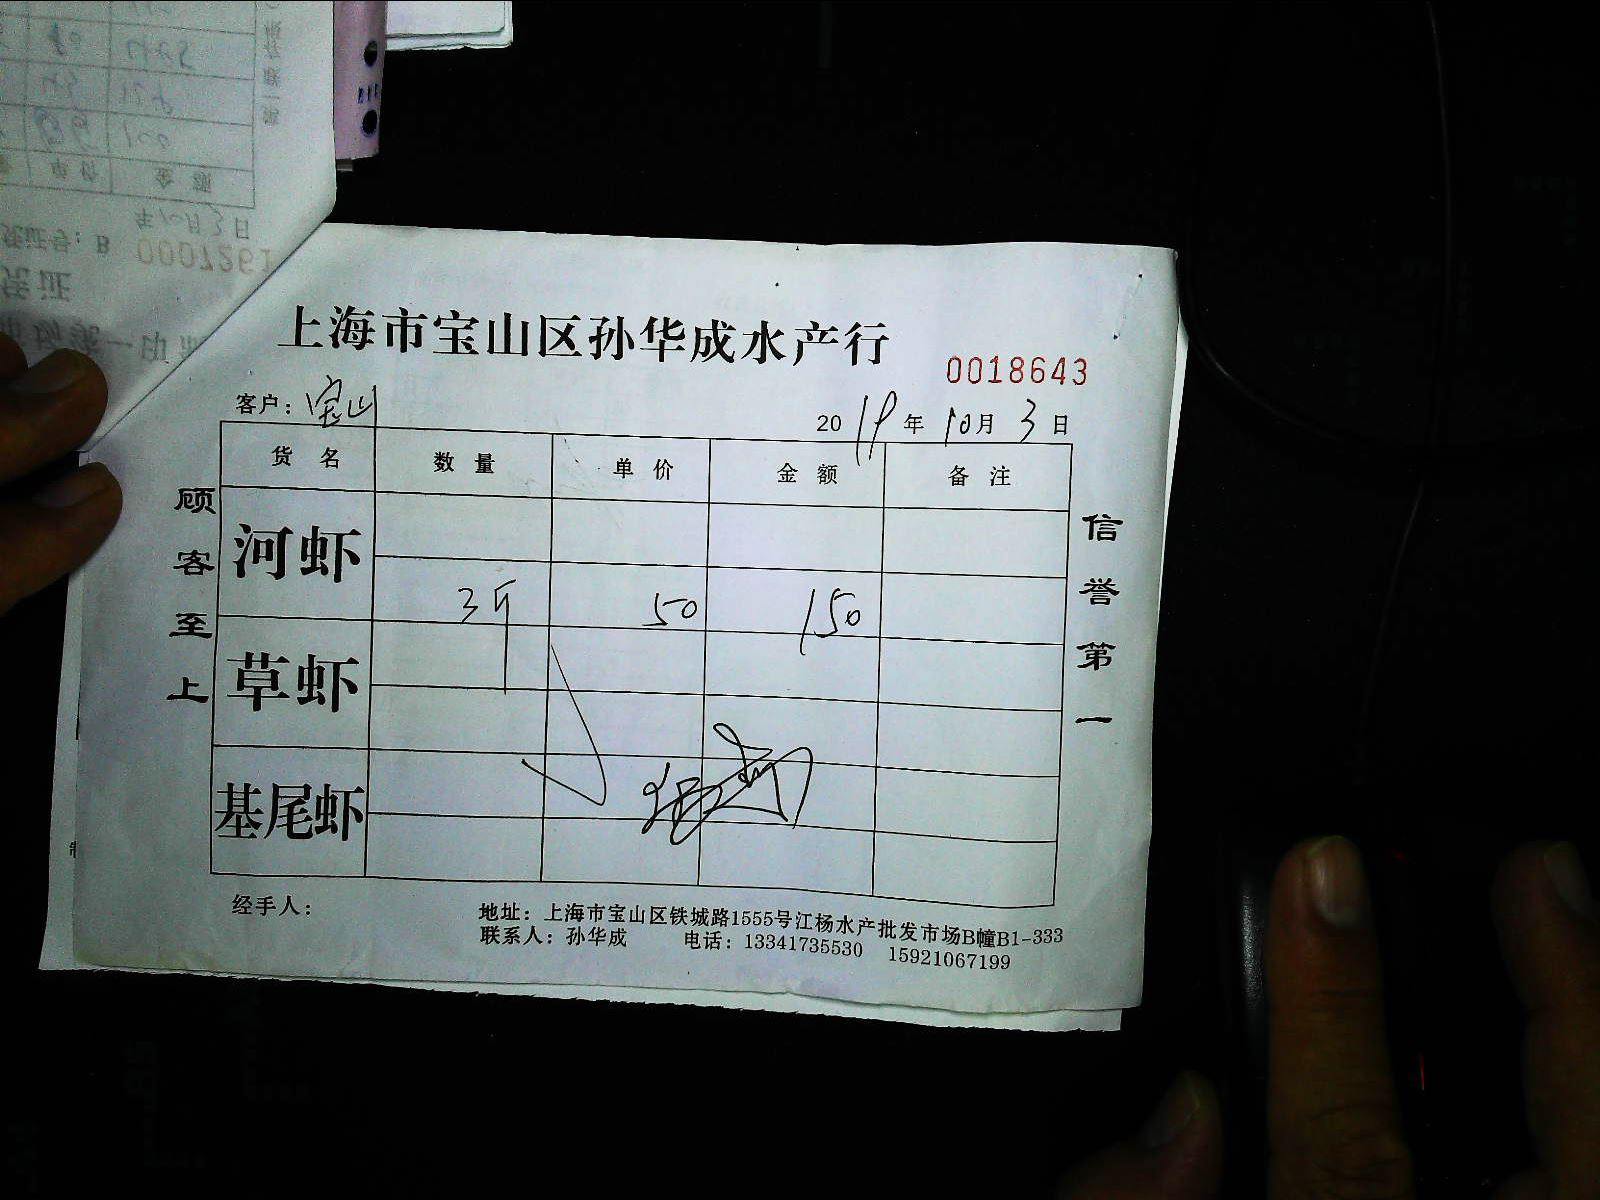 上海市宝山区孙华成水产行
0018643
客户：宝山
2019年10月3日
货名 数量 单价 金额 备注
河虾
3斤 50 150
草虾
基尾虾
顾客至上
信誉第一
经手人：
地址：上海市宝山区铁城路1555号江杨水产批发市场B幢B1-333
联系人：孙华成 电话：13341735530 15921067199
凭证号：B 0007261
年10月3日
单价 金额